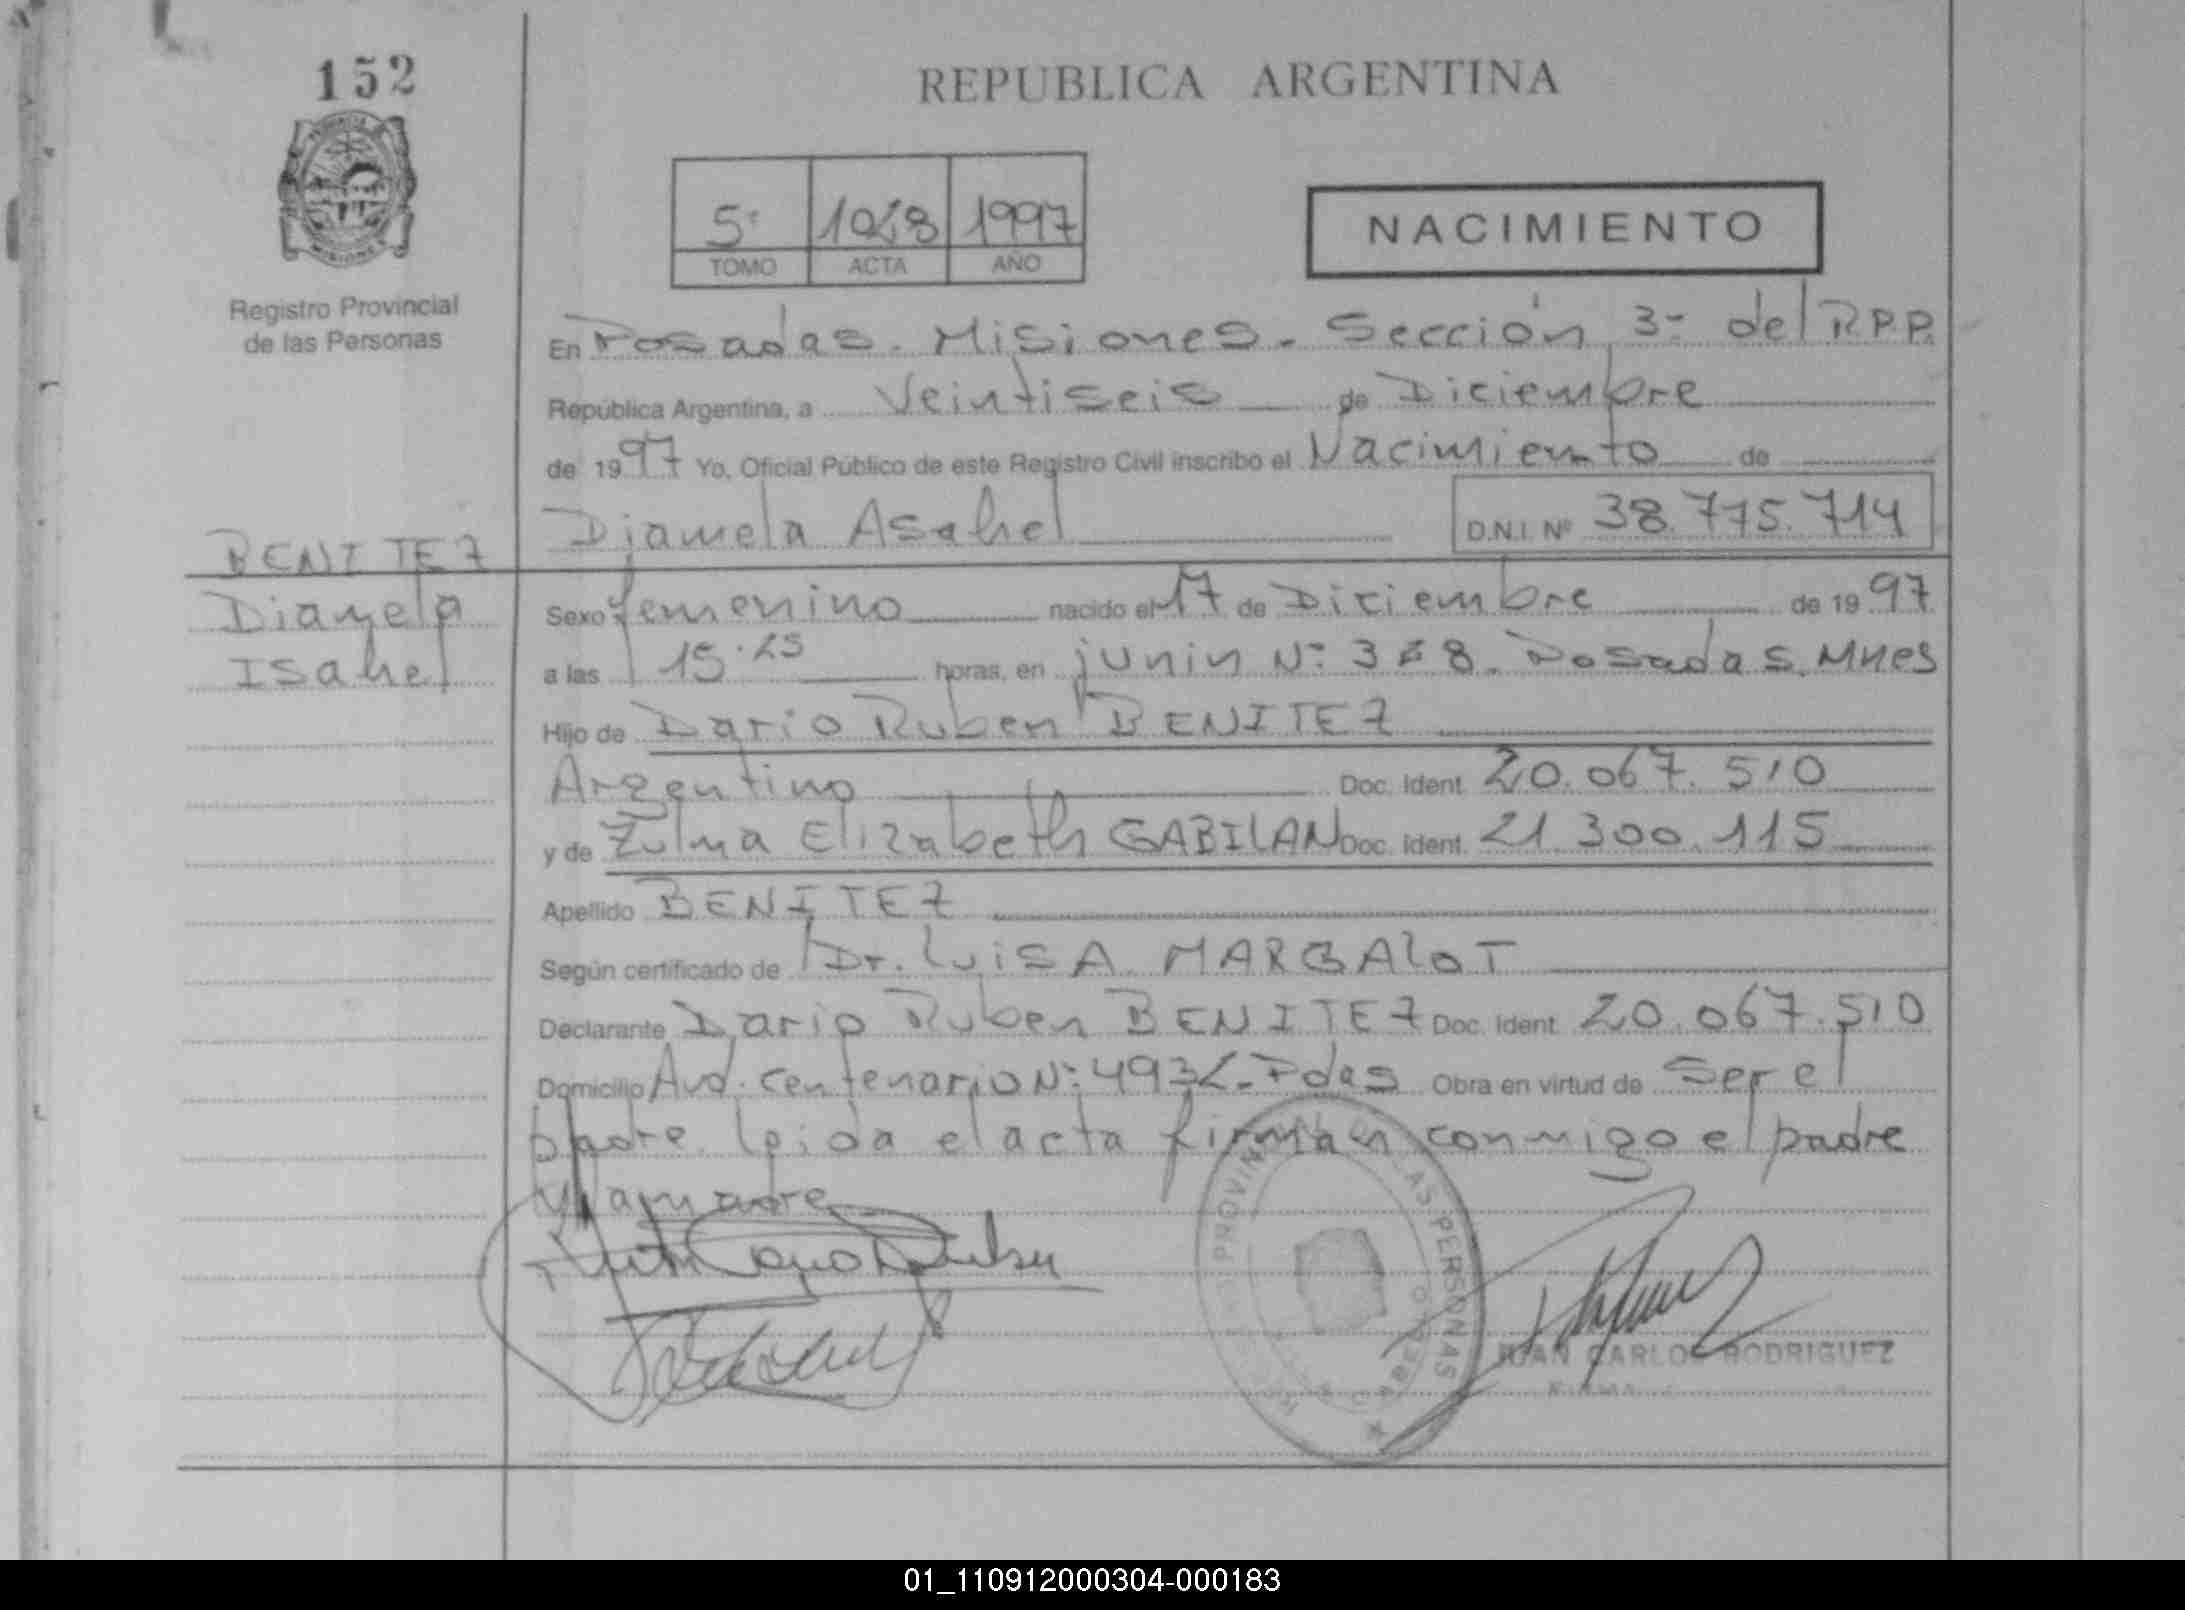 152
REPUBLICA ARGENTINA
PROVINCIA DE MISIONES
Registro Provincial
de las Personas
5º 1048 1997
TOMO ACTA AÑO
NACIMIENTO
En Posadas. Misiones. Sección 3ª del R.P.P.
República Argentina, a Veintiseis de Diciembre
de 1997 Yo, Oficial Público de este Registro Civil inscribo el Nacimiento de
Diamela Asahel D.N.I. Nº 38.775.714
BENITEZ
Diamela
Isahel
Sexo femenino nacido el 17 de Diciembre de 1997
a las 15.25 horas, en junin Nº: Posadas. Mnes
Hijo de Dario Ruben BENITEZ
Argentino Doc. Ident. 20.067.510
y de Zulma Elizabeth GABILAN Doc. Ident. 21.300.115
Apellido BENITEZ
Según certificado de Dr. Luis A MARGALOT
Declarante Dario Ruben BENITEZ Doc. Ident. 20.067.510
Domicilio Avd. Centenario Nº: 4932-Pdas Obra en virtud de Ser el
padre. leida el acta firman conmigo el padre
y la madre
PERSONAS
JUAN CARLOS RODRIGUEZ
01_110912000304-000183